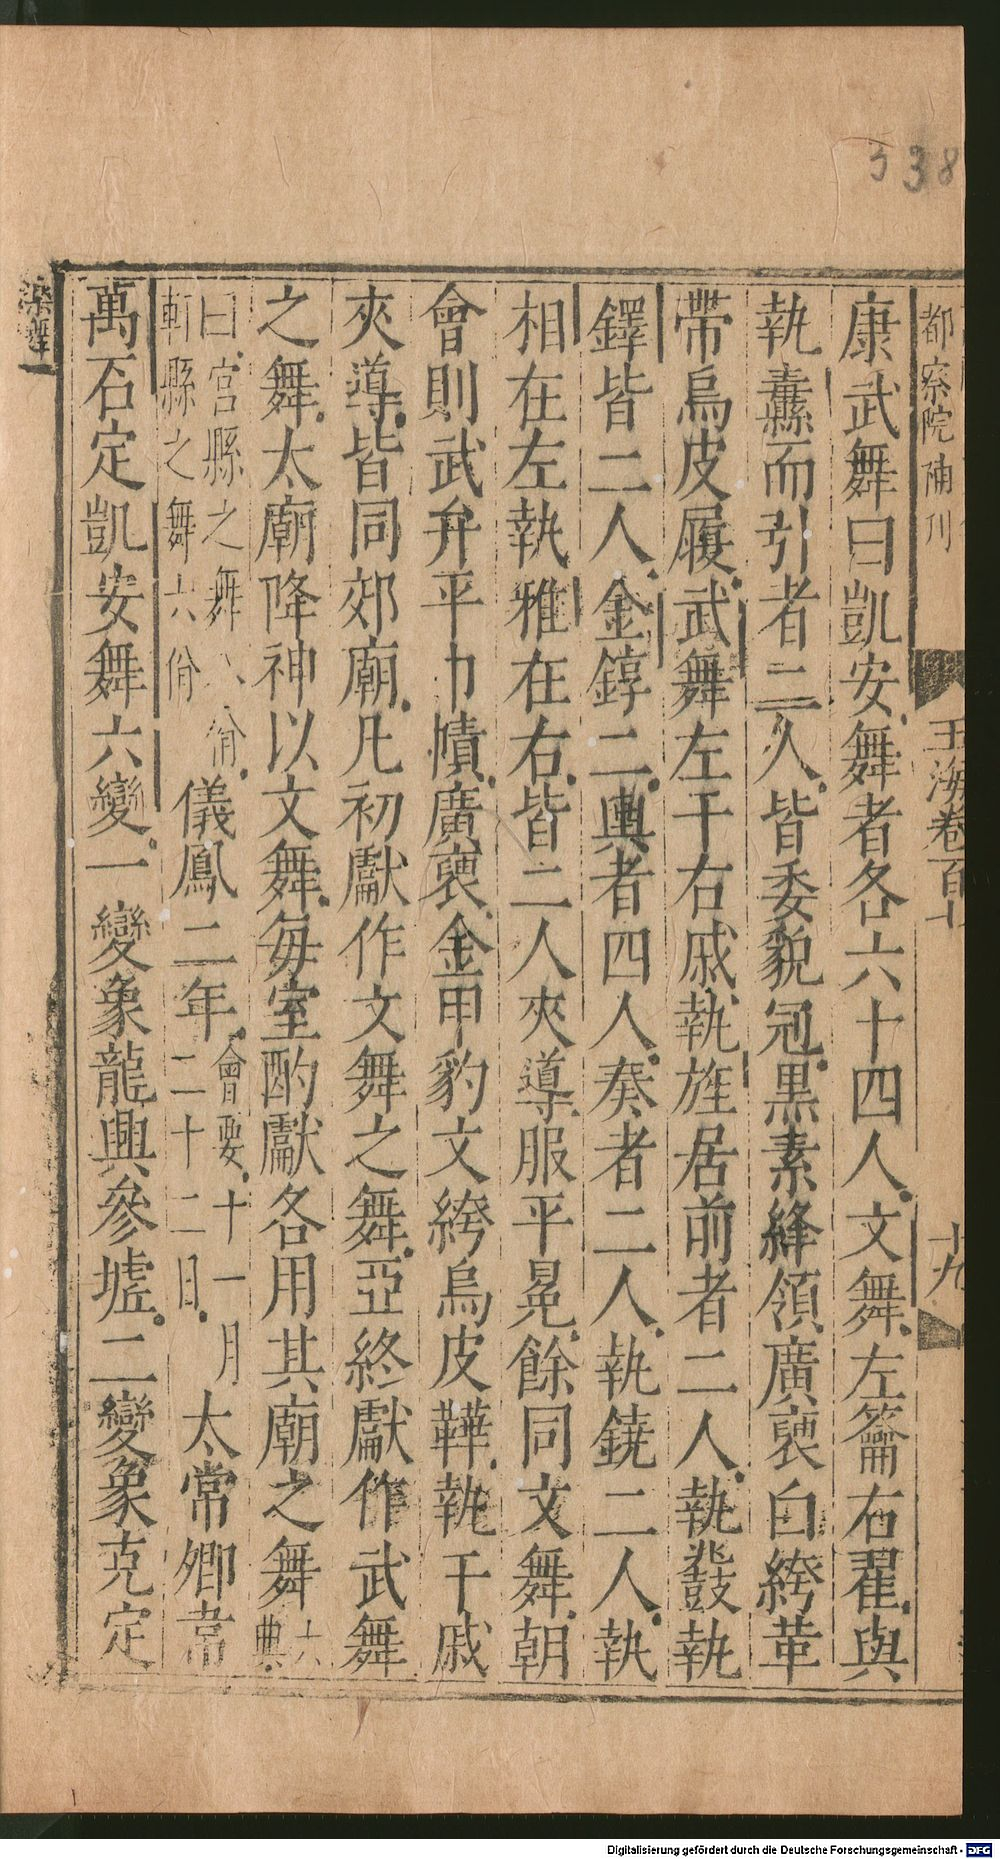 338
都察院補刊
玉海卷百七
十九
康武舞曰凱安舞者各六十四人文舞左籥右翟與
執纛而引者二人皆委貌冠黑素絳領廣褏白絝革
帶烏皮履武舞左干右戚執旌居前者二人執鼗執
鐸皆二人金錞二輿者四人奏者二人執鐃二人執
相在左執雅在右皆二人夾導服平冕餘同文舞朝
會則武弁平巾幘廣褏金甲豹文絝烏皮鞾執干戚
夾導皆同郊廟凡初獻作文舞之舞亞終獻作武舞
之舞太廟降神以文舞每室酌獻各用其廟之舞六典
曰宮縣之舞八佾
軒縣之舞六佾
儀鳳二年會要十一月二十二日太常卿韋
萬石定凱安舞六變一變象龍興參墟二變象克定
樂舞一
Digitalisierung gefördert durch die Deutsche Forschungsgemeinschaft - DFG